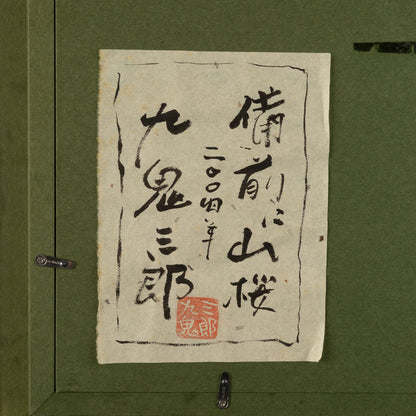 備前に山桜
二〇〇四年
九鬼三郎
三郎
九鬼